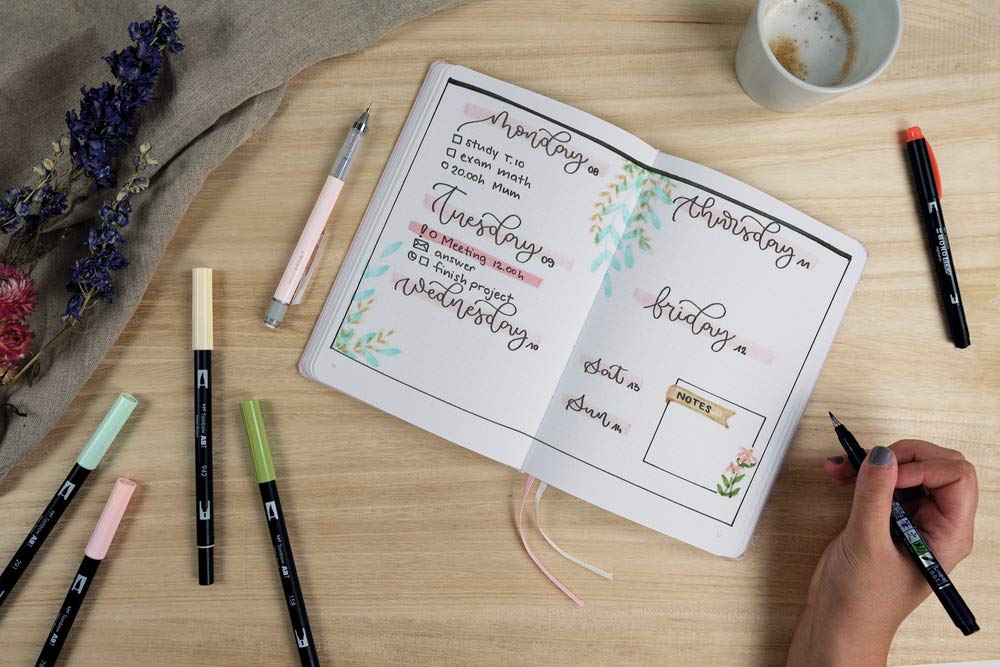 monday 08
study T.10
exam math
20.00h Mum
Tuesday 09
! Meeting 12.00h
answer
finish project
wednesday 10
thursday 11
friday 12
Sat 13
Sun 14
NOTES
Tombow ABT
942
Tombow ABT
158
291
MONO